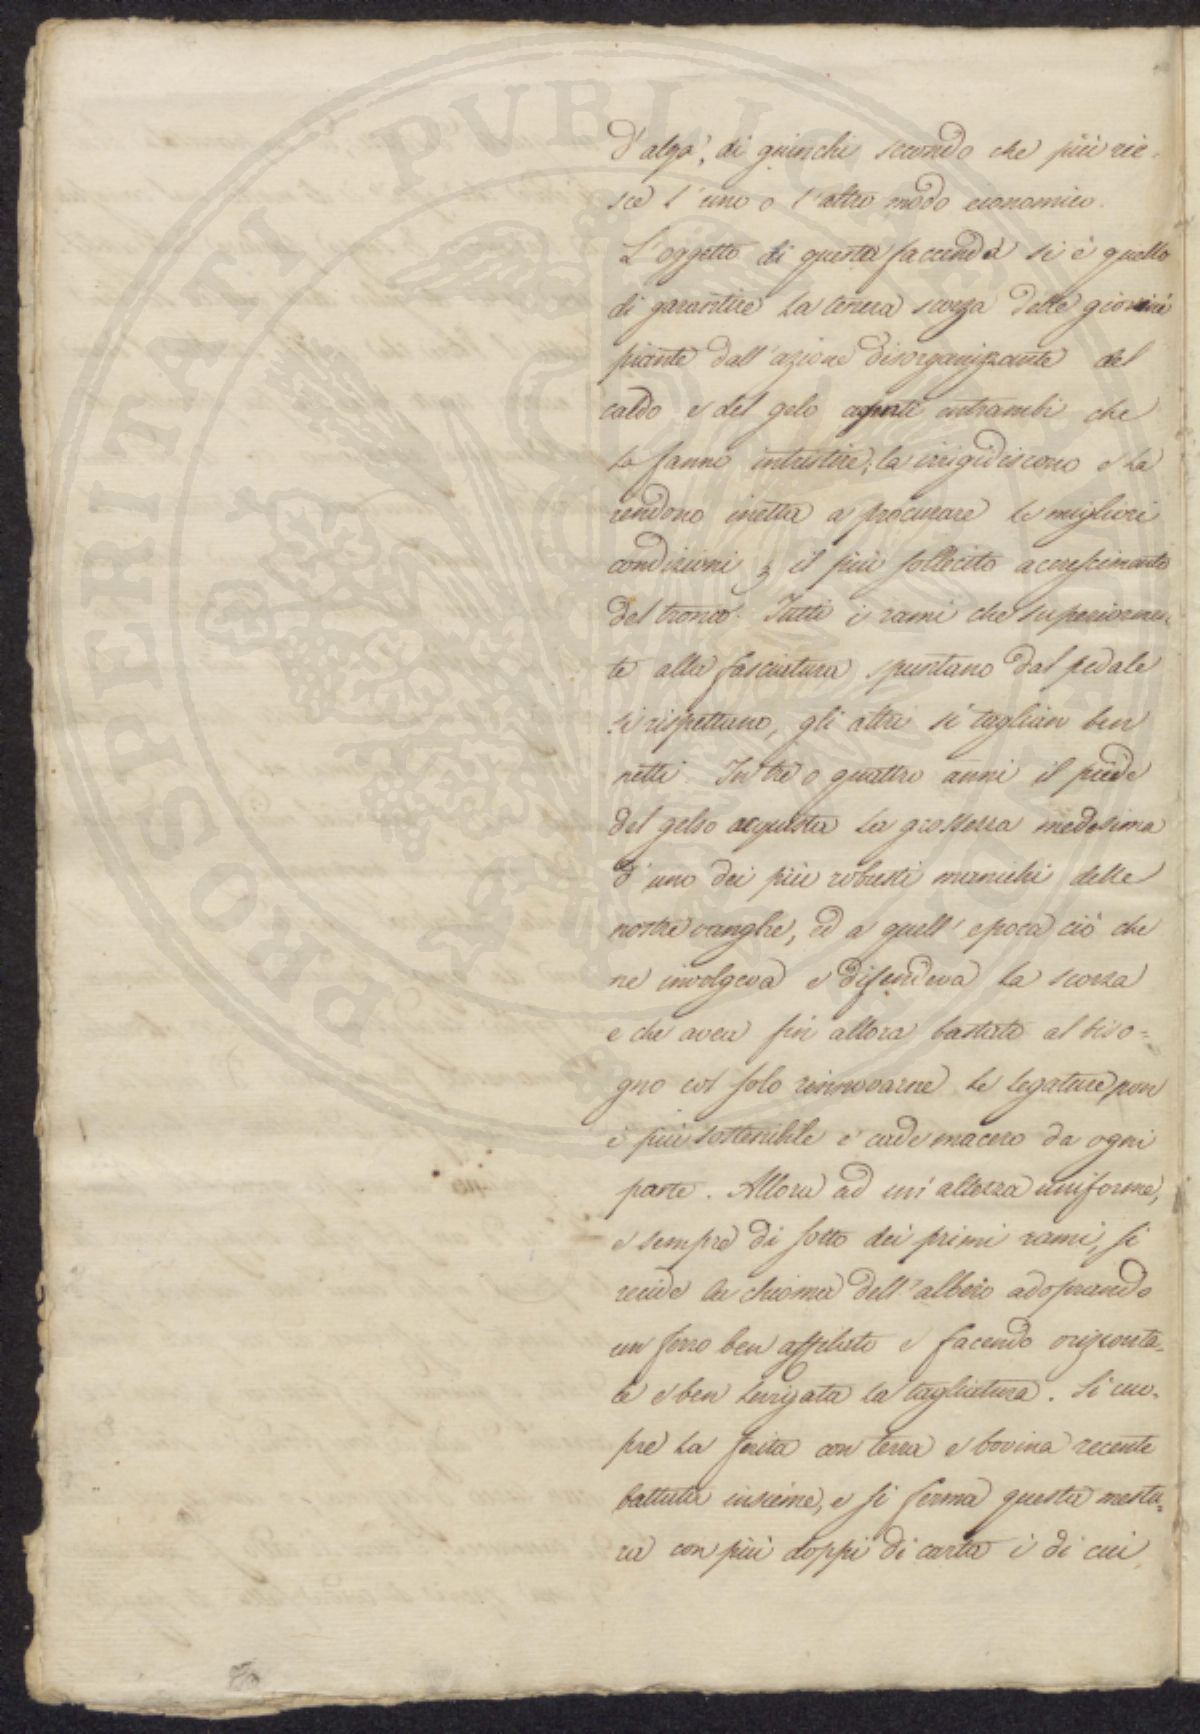 PROSPERITATI PUBLICAE
d'alga, di giunchi secondo che più rie-
sce l'uno o l'altro modo economico.
L'oggetto di questa faccenda si è quello
di garantire la tenera scorza delle giovini
piante dall'azione disorganizzante del
caldo e del gelo agenti entrambi che
la fanno intristire, la irrigidiscono e la
rendono inetta a procurare le migliori
condizioni, il più sollecito accrescimento
del tronco. Tutti i rami che superiormen-
te alla fasciatura spuntano dal pedale
si rispettano, gli altri si taglian ben
netti. In tre o quattro anni il piede
del gelso acquista la grossezza medesima
d'uno dei più robusti manichi delle
nostre vanghe, ed a quell'epoca ciò che
ne involgeva e difendeva la scorza
e che avea fin allora bastato al biso=
gno col solo rinnovarne le legature non
è più sostenibile e cade macero da ogni
parte. Allora ad un'altezza uniforme,
e sempre di sotto dei primi rami, si
recide la chioma dell'albero adoprando
un ferro ben affilato e facendo orizonta-
le e ben levigata la tagliatura. Si cuo-
pre la ferita con terra e bovina recente
battuta insieme, e si ferma questa mestu-
ra con più doppi di carta i di cui